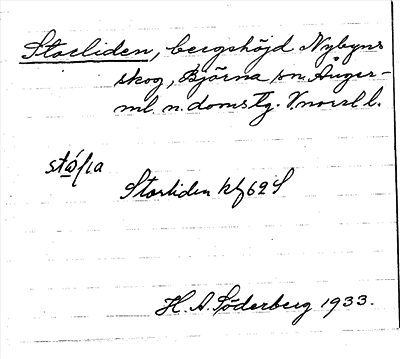 Storliden, bergshöjd Nybyns
skog, Björna sn. Ånger-
ml. n. doms Tg. V.norrl l.
Storliden kbl 62 S
H. A. Söderberg 1933.